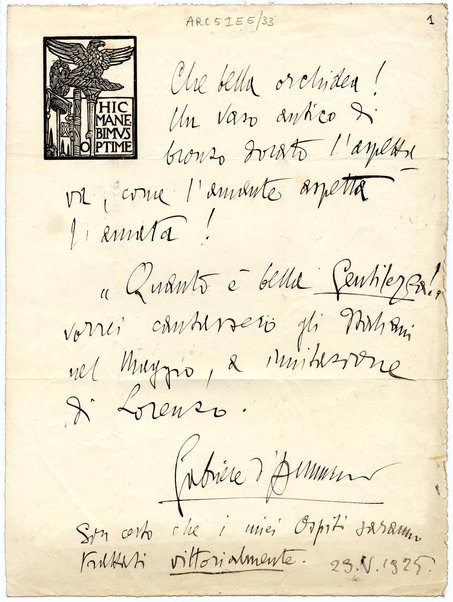 ARC 5 I E 5/33
1
HIC
MANE
BIMVS
OPTIME
Che bella orchidea!
Un vaso antico di
bronzo dorato l'aspetta
va, come l'amante aspetta
l'amata!
"Quanto è bella Gentilezza!"
vorrei cantassero gli Italiani
nel Maggio, a imitazione
di Lorenzo.
Gabriele d'Annunzio
Son certo che i miei Ospiti saranno
trattati vittorialmente. 29.V.1925.